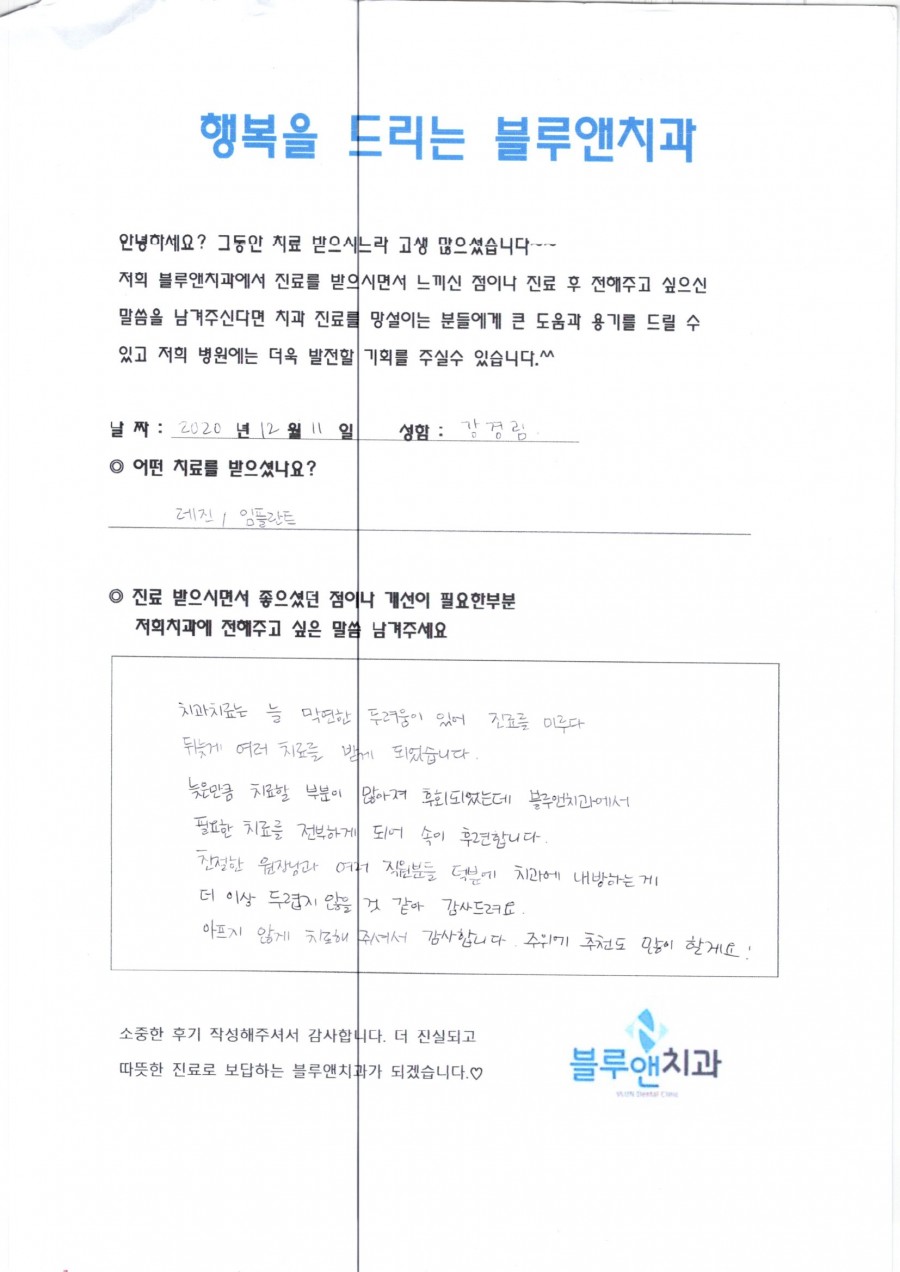 행복을 드리는 블루앤치과
안녕하세요? 그동안 치료 받으시느라 고생 많으셨습니다~~~
저희 블루앤치과에서 진료를 받으시면서 느끼신 점이나 진료 후 전해주고 싶으신
말씀을 남겨주신다면 치과 진료를 망설이는 분들에게 큰 도움과 용기를 드릴 수
있고 저희 병원에는 더욱 발전할 기회를 주실수 있습니다.^^
날 짜 : 2020 년 12 월 11 일 성함 : 강경림
◎ 어떤 치료를 받으셨나요?
레진, 임플란트
◎ 진료 받으시면서 좋으셨던 점이나 개선이 필요한부분
저희치과에 전해주고 싶은 말씀 남겨주세요
치과치료는 늘 막연한 두려움이 있어 진료를 미루다
뒤늦게 여러 치료를 받게 되었습니다.
늦은만큼 치료할 부분이 많아져 후회되었는데 블루앤치과에서
필요한 치료를 전부하게 되어 속이 후련합니다.
친절한 원장님과 여러 직원분들 덕분에 치과에 내방하는게
더 이상 두렵지 않을 것 같아 감사드려요.
아프지 않게 치료해 주셔서 감사합니다. 주위에 추천도 많이 할게요!
소중한 후기 작성해주셔서 감사합니다. 더 진실되고
따뜻한 진료로 보답하는 블루앤치과가 되겠습니다.♡
블루앤치과